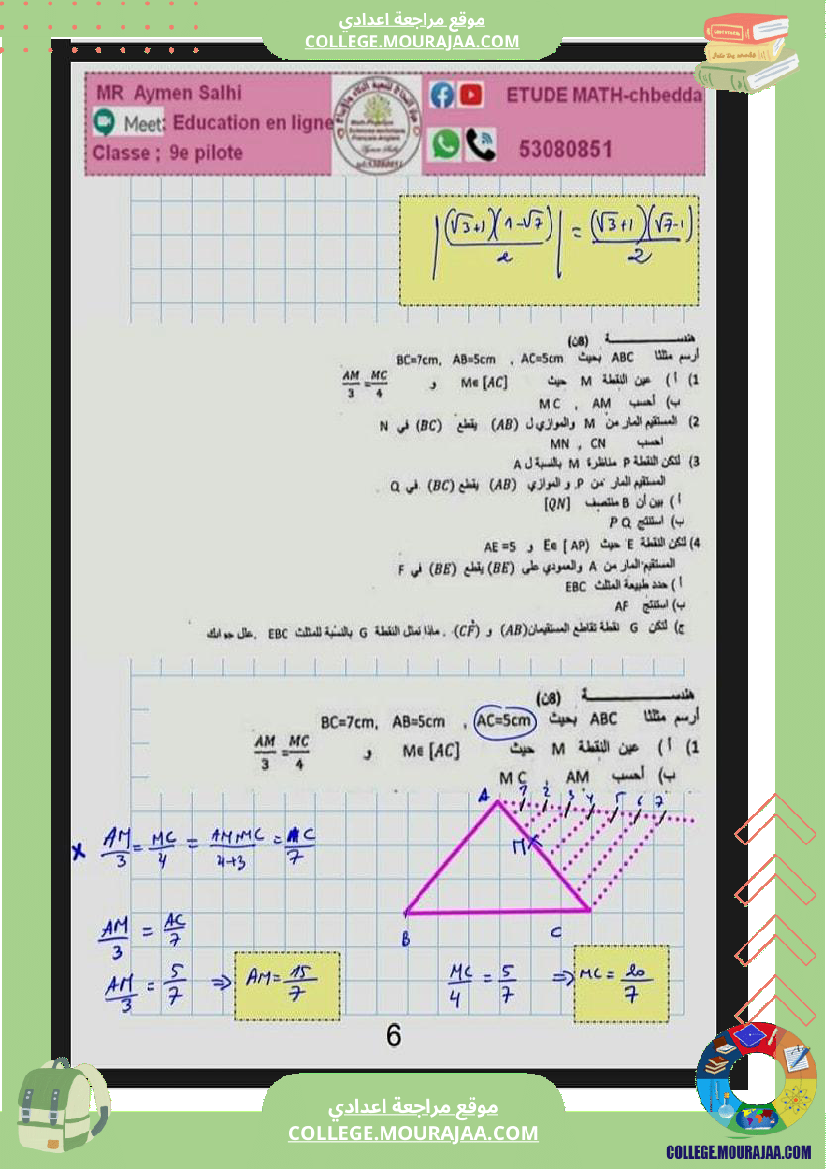 موقع مراجعة اعدادي
COLLEGE.MOURAJAA.COM
MR Aymen Salhi
Meet: Education en ligne
Classe ; 9e pilote
ETUDE MATH-chbedda
53080851
|(√3+1)(1-√7)/2| = (√3+1)(√7-1)/2
هندســـــــــة (8ن)
أرسم مثلثا ABC بحيث AC=5cm , AB=5cm , BC=7cm
1) أ) عين النقطة M حيث M∈[AC] و AM/3 = MC/4
ب) أحسب AM , MC
2) المستقيم المار من M والموازي ل (AB) يقطع (BC) في N
احسب MN , CN
3) لتكن النقطة P مناظرة M بالنسبة ل A
المستقيم المار من P و الموازي (AB) يقطع (BC) في Q .
أ) بين أن B منتصف [QN]
ب) استنتج PQ
4) لتكن النقطة E حيث E∈[AP) و AE=5
المستقيم المار من A والعمودي على (BE) يقطع (BE) في F
أ) حدد طبيعة المثلث EBC
ب) استنتج AF
ج) لتكن G نقطة تقاطع المستقيمان (AB) و (CF) . ماذا تمثل النقطة G بالنسبة للمثلث EBC . علل جوابك
هندســـــــــة (8ن)
أرسم مثلثا ABC بحيث AC=5cm , AB=5cm , BC=7cm
1) أ) عين النقطة M حيث M∈[AC] و AM/3 = MC/4
ب) أحسب AM , MC
A 1 2 3 4 5 6 7
M
B C
x AM/3 = MC/4 = AM+MC/4+3 = AC/7
AM/3 = AC/7
AM/3 = 5/7 ⇒ AM = 15/7
MC/4 = 5/7 ⇒ MC = 20/7
6
موقع مراجعة اعدادي
COLLEGE.MOURAJAA.COM
COLLEGE.MOURAJAA.COM